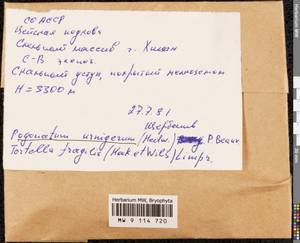 СО АССР
Цейская подкова
Скальный массив г. Хицан
С-В экспоз.
Скальный уступ, покрытый мелкоземом
H = 3300 м
27.7.81
Щербаков
Pogonatum urnigerum (Hedw.) P. Beauv.
Tortella fragilis (Hook. et Wils.) Limpr.
Herbarium MW, Bryophyta
MW 9 114 720
Herbarium MW